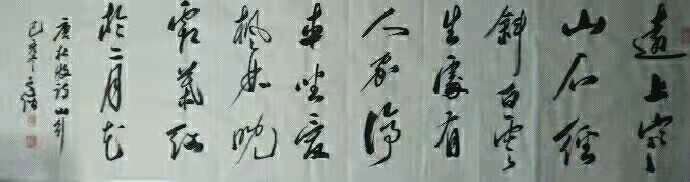 遠上寒
山石徑
斜白雲
生處有
人家停
車坐愛
楓林晚
霜葉紅
於二月花
唐杜牧詩山行
己亥年